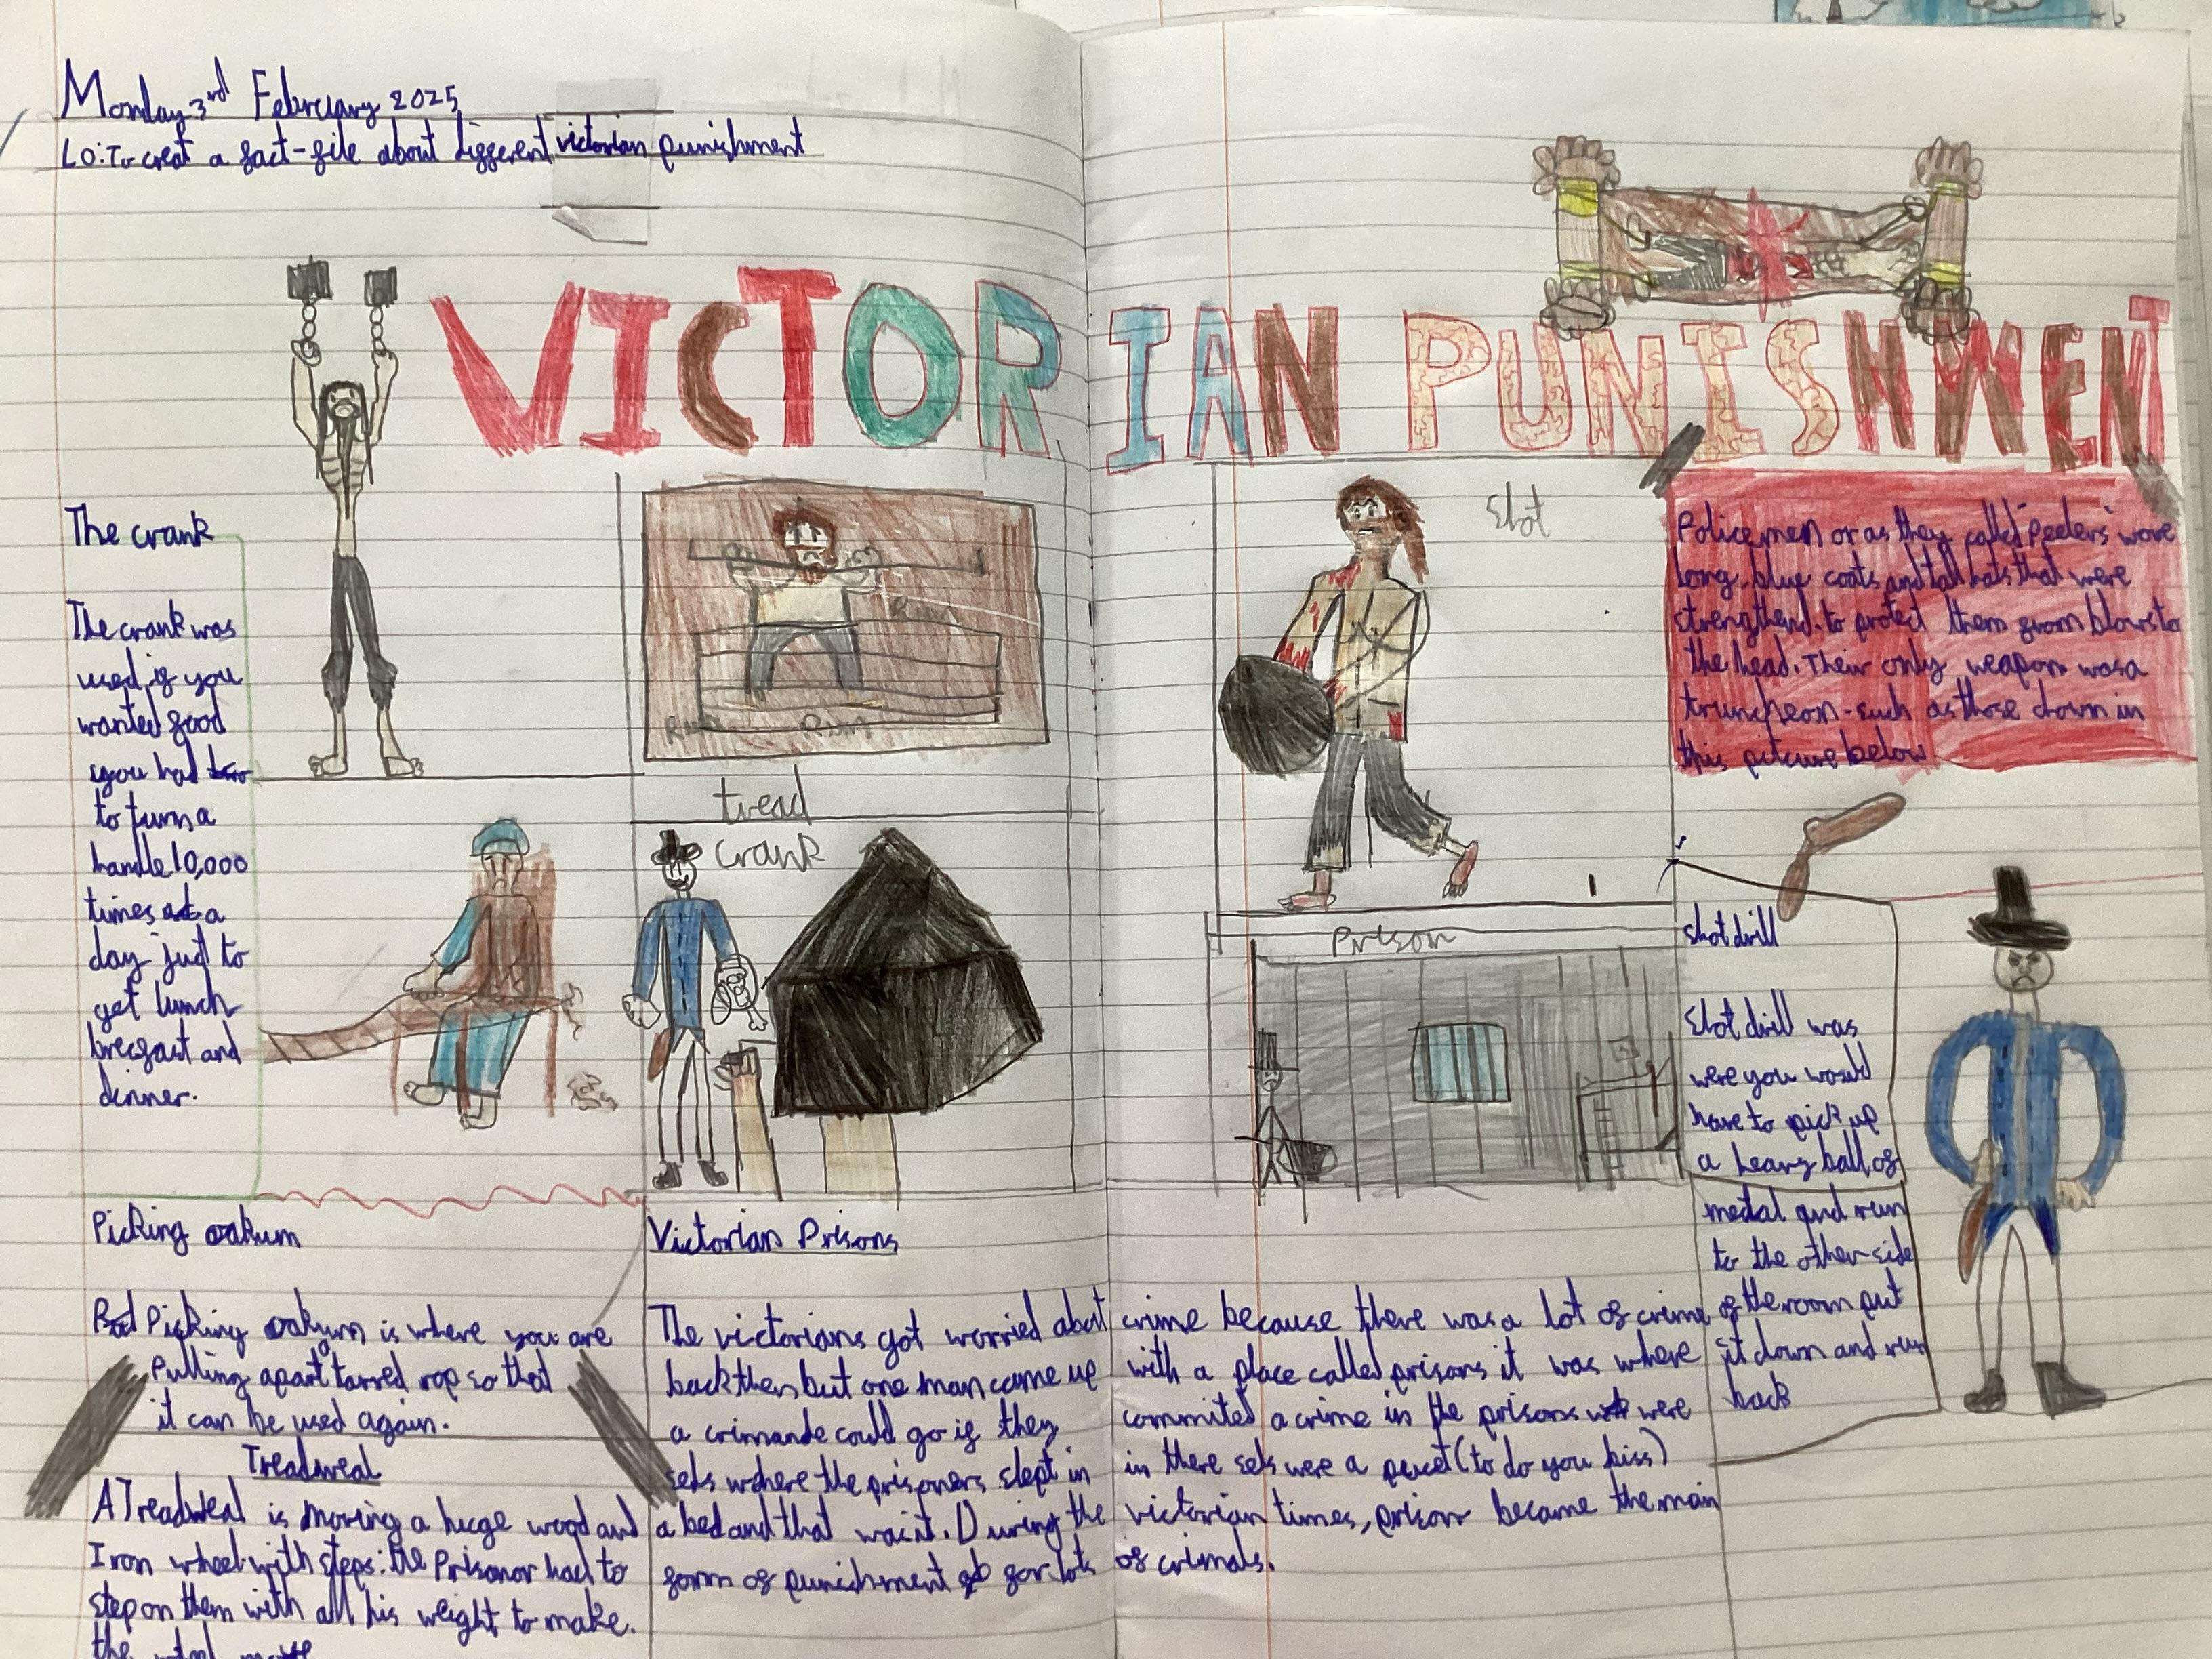 Monday 3rd February 2025
LO: To creat a fact-file about different victorian punishment
VICTORIAN PUNISHMENT
The crank
The crank was
used if you
wanted food
you had
to turn a
handle 10,000
times a
day just to
get lunch
brecfast and
dinner.
Run
Run
Run
tread
crank
Shot
Prison
Policemen or as they called "Peelers" wore
long, blue coats and tall hats that were
strengthend to protect them from blows to
the head. Their only weapon was a
truncheon - such as those down in
this pitcure below
Shot drill
Shot drill was
were you would
have to pick up
a heavy ball of
metal and run
to the other side
of the room put
it down and run
back
Picking oakum
Picking oakum is where you are
Pulling apart tarred rop so that
it can be used again.
Treadweal
A Treadweal is moving a huge wood and
Iron wheel with steps: the Prisonor had to
step on them with all his weight to make.
the
Victorian Prisons
The victorians got worried about crime because there was a lot of crime
back then but one man came up with a place called prisons it was where
a crimande could go if they commited a crime in the prisons were
sels where the prisoners slept in in there sels were a (to do you biss)
a bed and that was it. During the victorian times, prison became the main
form of punishment for lots of crimals.